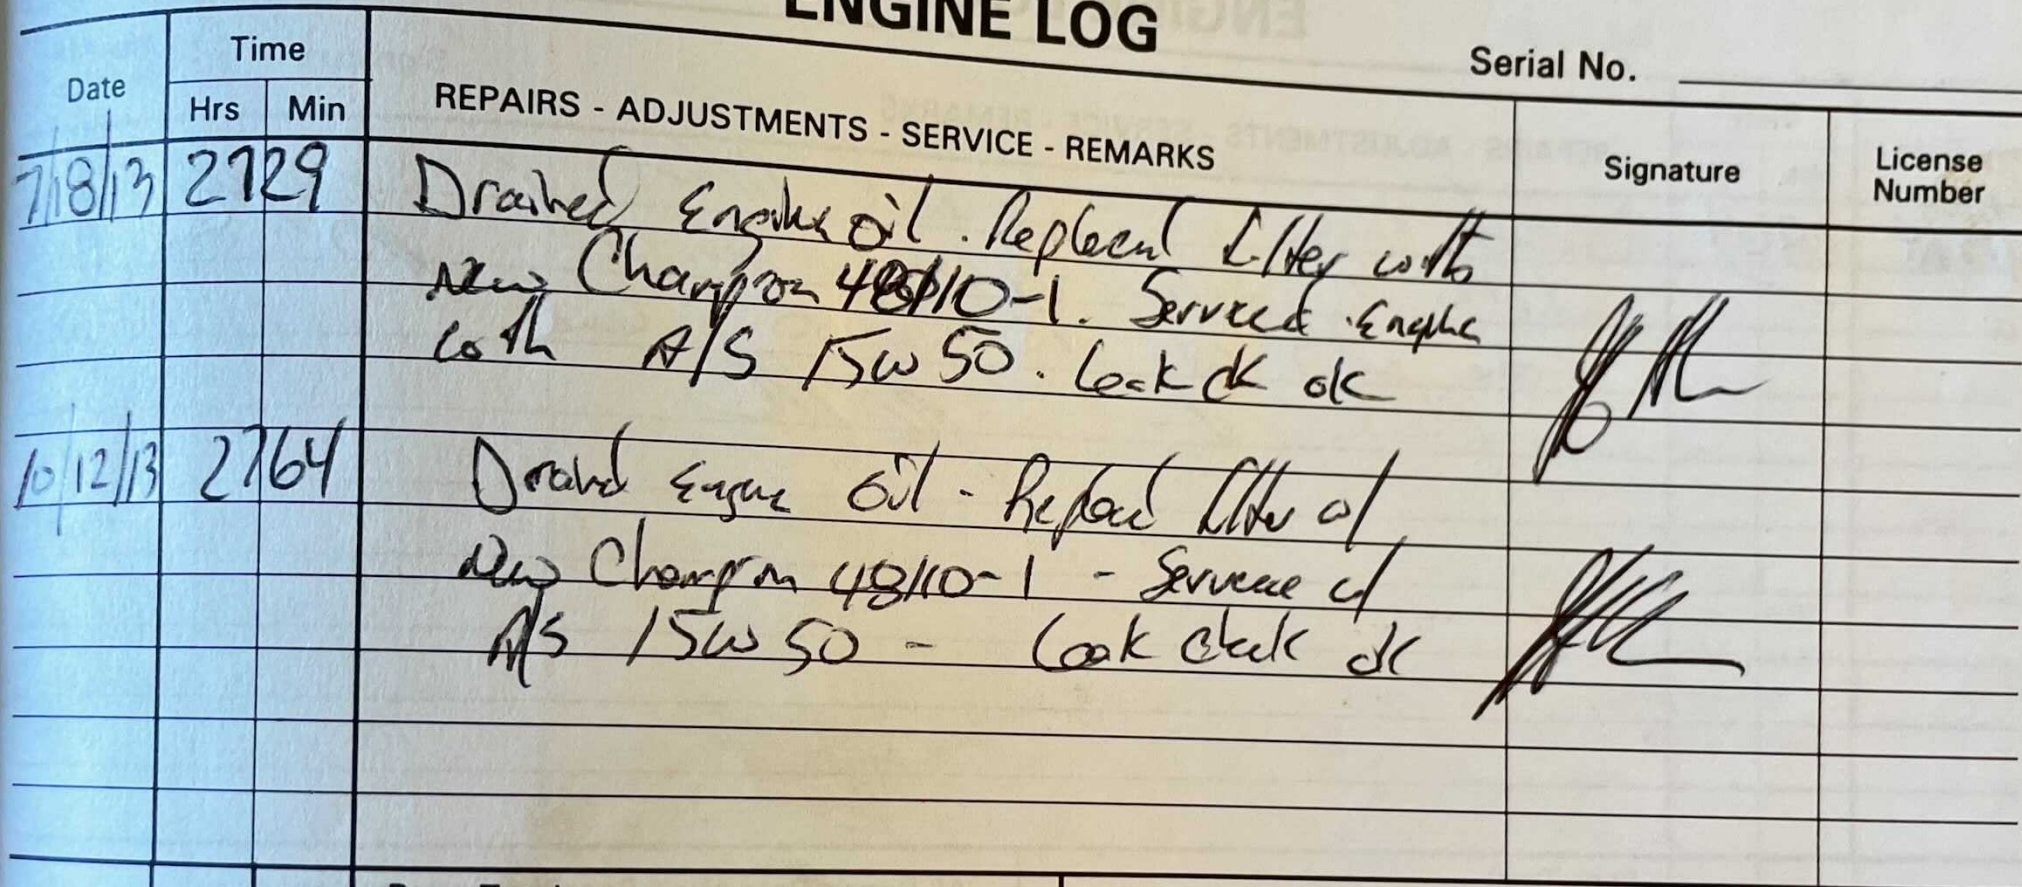 ENGINE LOG
Serial No.
Date
Time
Hrs Min
REPAIRS - ADJUSTMENTS - SERVICE - REMARKS
Signature
License Number
7/18/13 2729 Drained Engine oil. Replaced filter with
New Champion 48110-1. Serviced Engine
with A/S 15W50. Leak ck ok
10/12/13 2764 Drained Engine Oil - Replaced filter w/
New Champion 48110-1 - Service w/
A/S 15W50 - Leak check ok